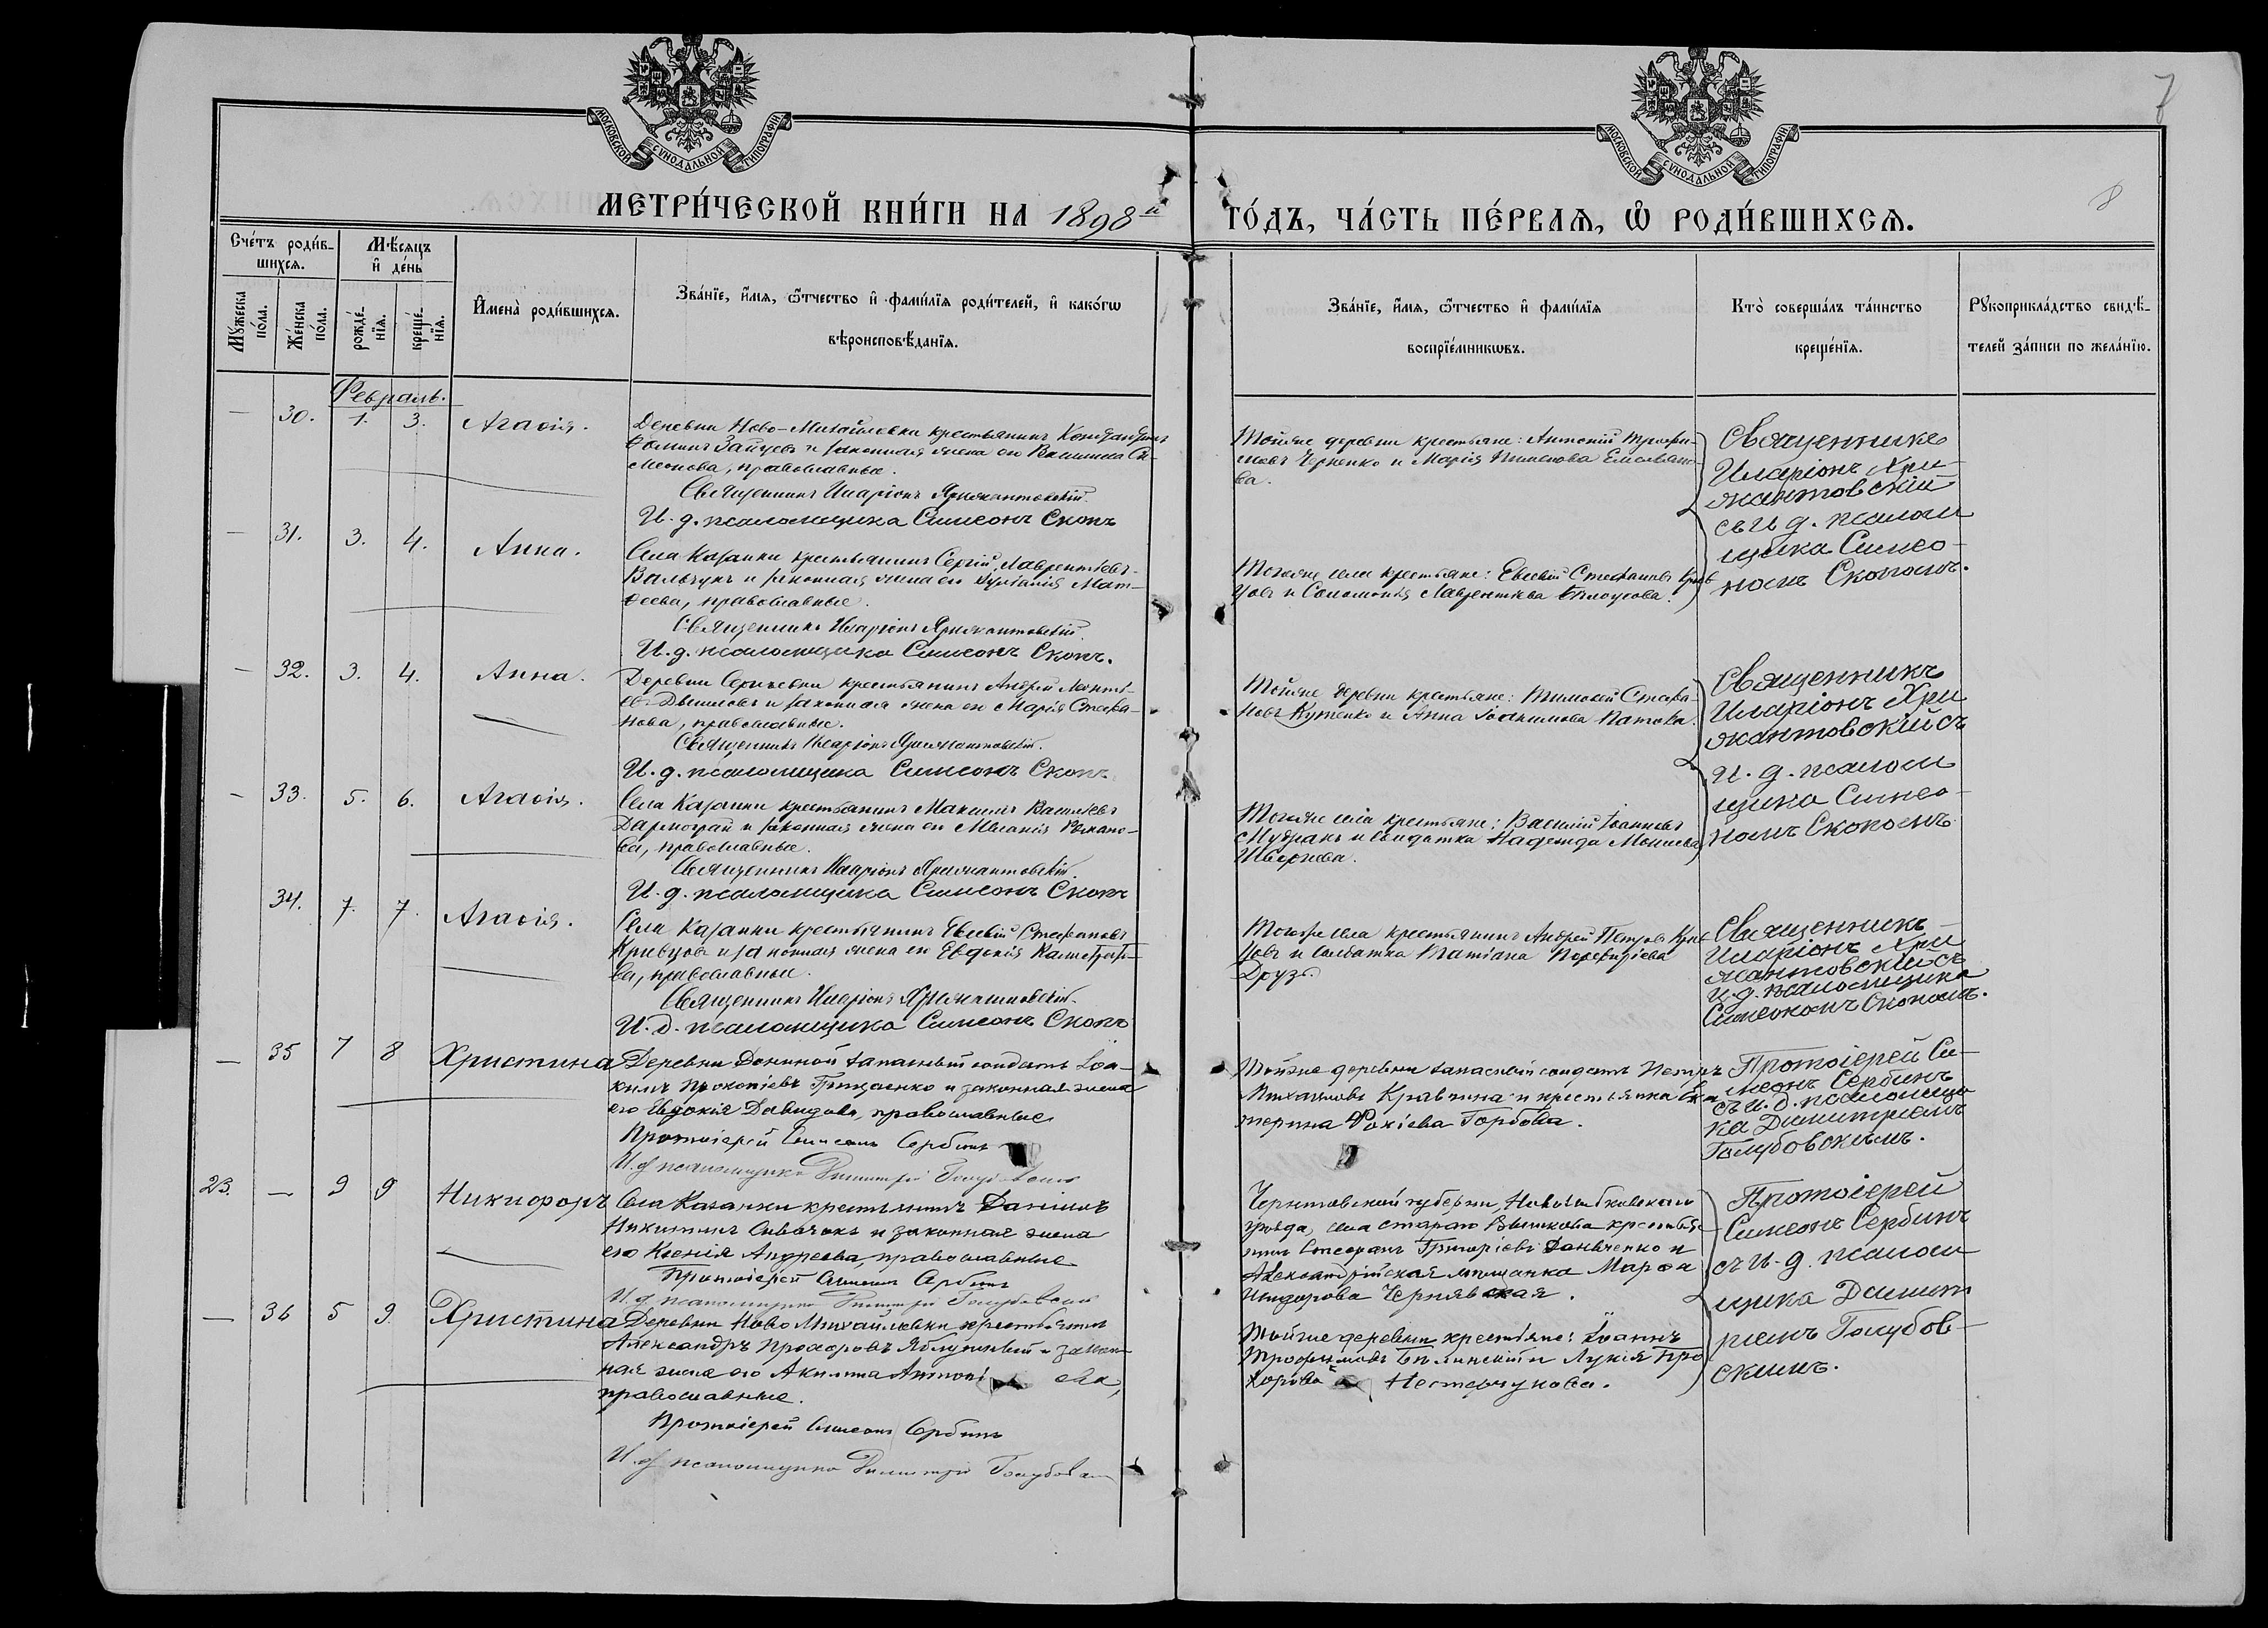 7
8
МОСКОВСКОЙ СУНОДАЛЬНОЙ ТИПОГРАФІИ
МОСКОВСКОЙ СУНОДАЛЬНОЙ ТИПОГРАФІИ
МЕТРИ́ЧЕСКОЙ КНИ́ГИ НА 1898й
ГО́ДЪ, ЧА́СТЬ ПЕ́РВАѦ, Ѡ҆ РОДИ́ВШИХСѦ.
Сче́тъ роди́в-
шихсѧ.
Мꙋ́жеска по́ла.
Же́нска по́ла.
Мѣ́сѧцъ и҆ де́нь
рожде́-нїѧ.
креще́-нїѧ.
И҆мена̀ роди́вшихсѧ.
Зва́нїе, и҆́мѧ, ѻ҆́тчество и҆ фами́лїѧ роди́телей, и҆ како́гѡ
вѣроисповѣ́данїѧ.
Зва́нїе, и҆́мѧ, ѻ҆́тчество и҆ фами́лїѧ
воспрїе́мникѡвъ.
Кто̀ соверша́лъ та́инство
креще́нїѧ.
Рꙋкоприкла́дство свидѣ́-
телей за́писи по жела́нїю.
Февраль.
— 30. 1. 3. Агаѳія.
Деревни Ново-Михайловки крестьянинъ Константинъ
Ѳоминъ Зайцевъ и законная жена его Василиса Си-
меонова, православные.
Священникъ Иларіонъ Хрижантовскій
И. д. псаломщика Симеонъ Скопъ
Тойже деревни крестьяне: Антоній Трофи-
мовъ Черненко и Марія Пименова Емельяно-
ва.
Священникъ
Иларіонъ Хри-
жантовскій
съ И д. псалом
щика Симео-
номъ Скопомъ.
— 31. 3. 4. Анна.
Села Казанки крестьянинъ Сергій Лаврентіевъ
Вальчукъ и законная жена его Іуліанія Мат-
ѳеева, православные.
Священникъ Иларіонъ Хрижантовскій
И. д. псаломщика Симеонъ Скопъ.
Тогоже села крестьяне: Евсевій Стефановъ Крив
цовъ и Соломонія Лаврентіева Бѣлоусова.
— 32. 3. 4. Анна.
Деревни Сергѣевки крестьянинъ Андрей Леонті-
евъ и законная жена его Марія Стефа-
нова, православные.
Священникъ Иларіонъ Хрижантовскій.
И. д. псаломщика Симеонъ Скопъ
Тойже деревни крестьяне: Тимоѳей Стефа-
новъ Куценко и Анна Іоакимова
Священникъ
Иларіонъ Хри
жантовскій съ
И. д. псалом
щика Симео-
номъ Скопомъ
— 33. 5. 6. Агаѳія.
Села Казанки крестьянинъ Максимъ Васильевъ
Дармограй и законная жена его Меланія Романо-
ва, православные.
Священникъ Иларіонъ Хрижантовскій
И. д. псаломщика Симеонъ Скопъ
Тогоже села крестьяне: Василій Іоанновъ
Мудракъ и солдатка Надежда Моисеева
34. 7. 7. Агаѳія.
Села Казанки крестьянинъ Евсевій Стефановъ
Кривцовъ и законная жена его Евдокія Каллистрато-
ва, православные.
Священникъ Иларіонъ Хрижантовскій.
И. д. псаломщика Симеонъ Скопъ
Тогоже села крестьянинъ Андрей Петровъ Крив
цовъ и солдатка Татіана Порфиріева
Друзь.
Священникъ
Иларіонъ Хри
жантовскій съ
и. д. псаломщика
Симеономъ Скопомъ.
— 35 7 8 Христина
Деревни запасный солдатъ Іоа-
кимъ Прокопіевъ Грицаенко и законная жена
его Евдокія Давидова, православные
Протоіерей Симеонъ Сербинъ
И. д. псаломщика Димитрій Голубовскій
Тойже деревни запасный солдатъ Петръ
Михайловъ Кравчина и крестьянка Ека
терина Фокіева Горбова.
Протоіерей Си-
меонъ Сербинъ
съ И. д. псаломщи
ка Димитріемъ
Голубовскимъ.
23. — 9 9 Никифоръ
Села Казанки крестьянинъ Даніилъ
Никитинъ Сивочокъ и законная жена
его Ксенія Андреева, православные
Протоіерей Симеонъ Сербинъ
И. д. псаломщика Димитрій Голубовскій
Черниговской губерніи, Новозыбковскаго
уѣзда, села Стараго Вышкова крестья
нинъ Стефанъ Григоріевъ Даньченко и
Александрійская мѣщанка Марѳа
Исидорова Чернявская.
Протоіерей
Симеонъ Сербинъ
съ И. д. псалом
щика Димит
ріемъ Голубов-
скимъ.
— 36 5 9 Христина
Деревни Ново Михайловки крестьянинъ
Александръ Прохоровъ Яблуновскій и закон
ная жена его Акилина Антоні ева,
православные.
Протоіерей Симеонъ Сербинъ
И. д. псаломщика Димитрій Голубовскій
Тойже деревни крестьяне: Іоаннъ
Трофимовъ Бѣлинскій и Лукія Про
хорова Нестерчукова.